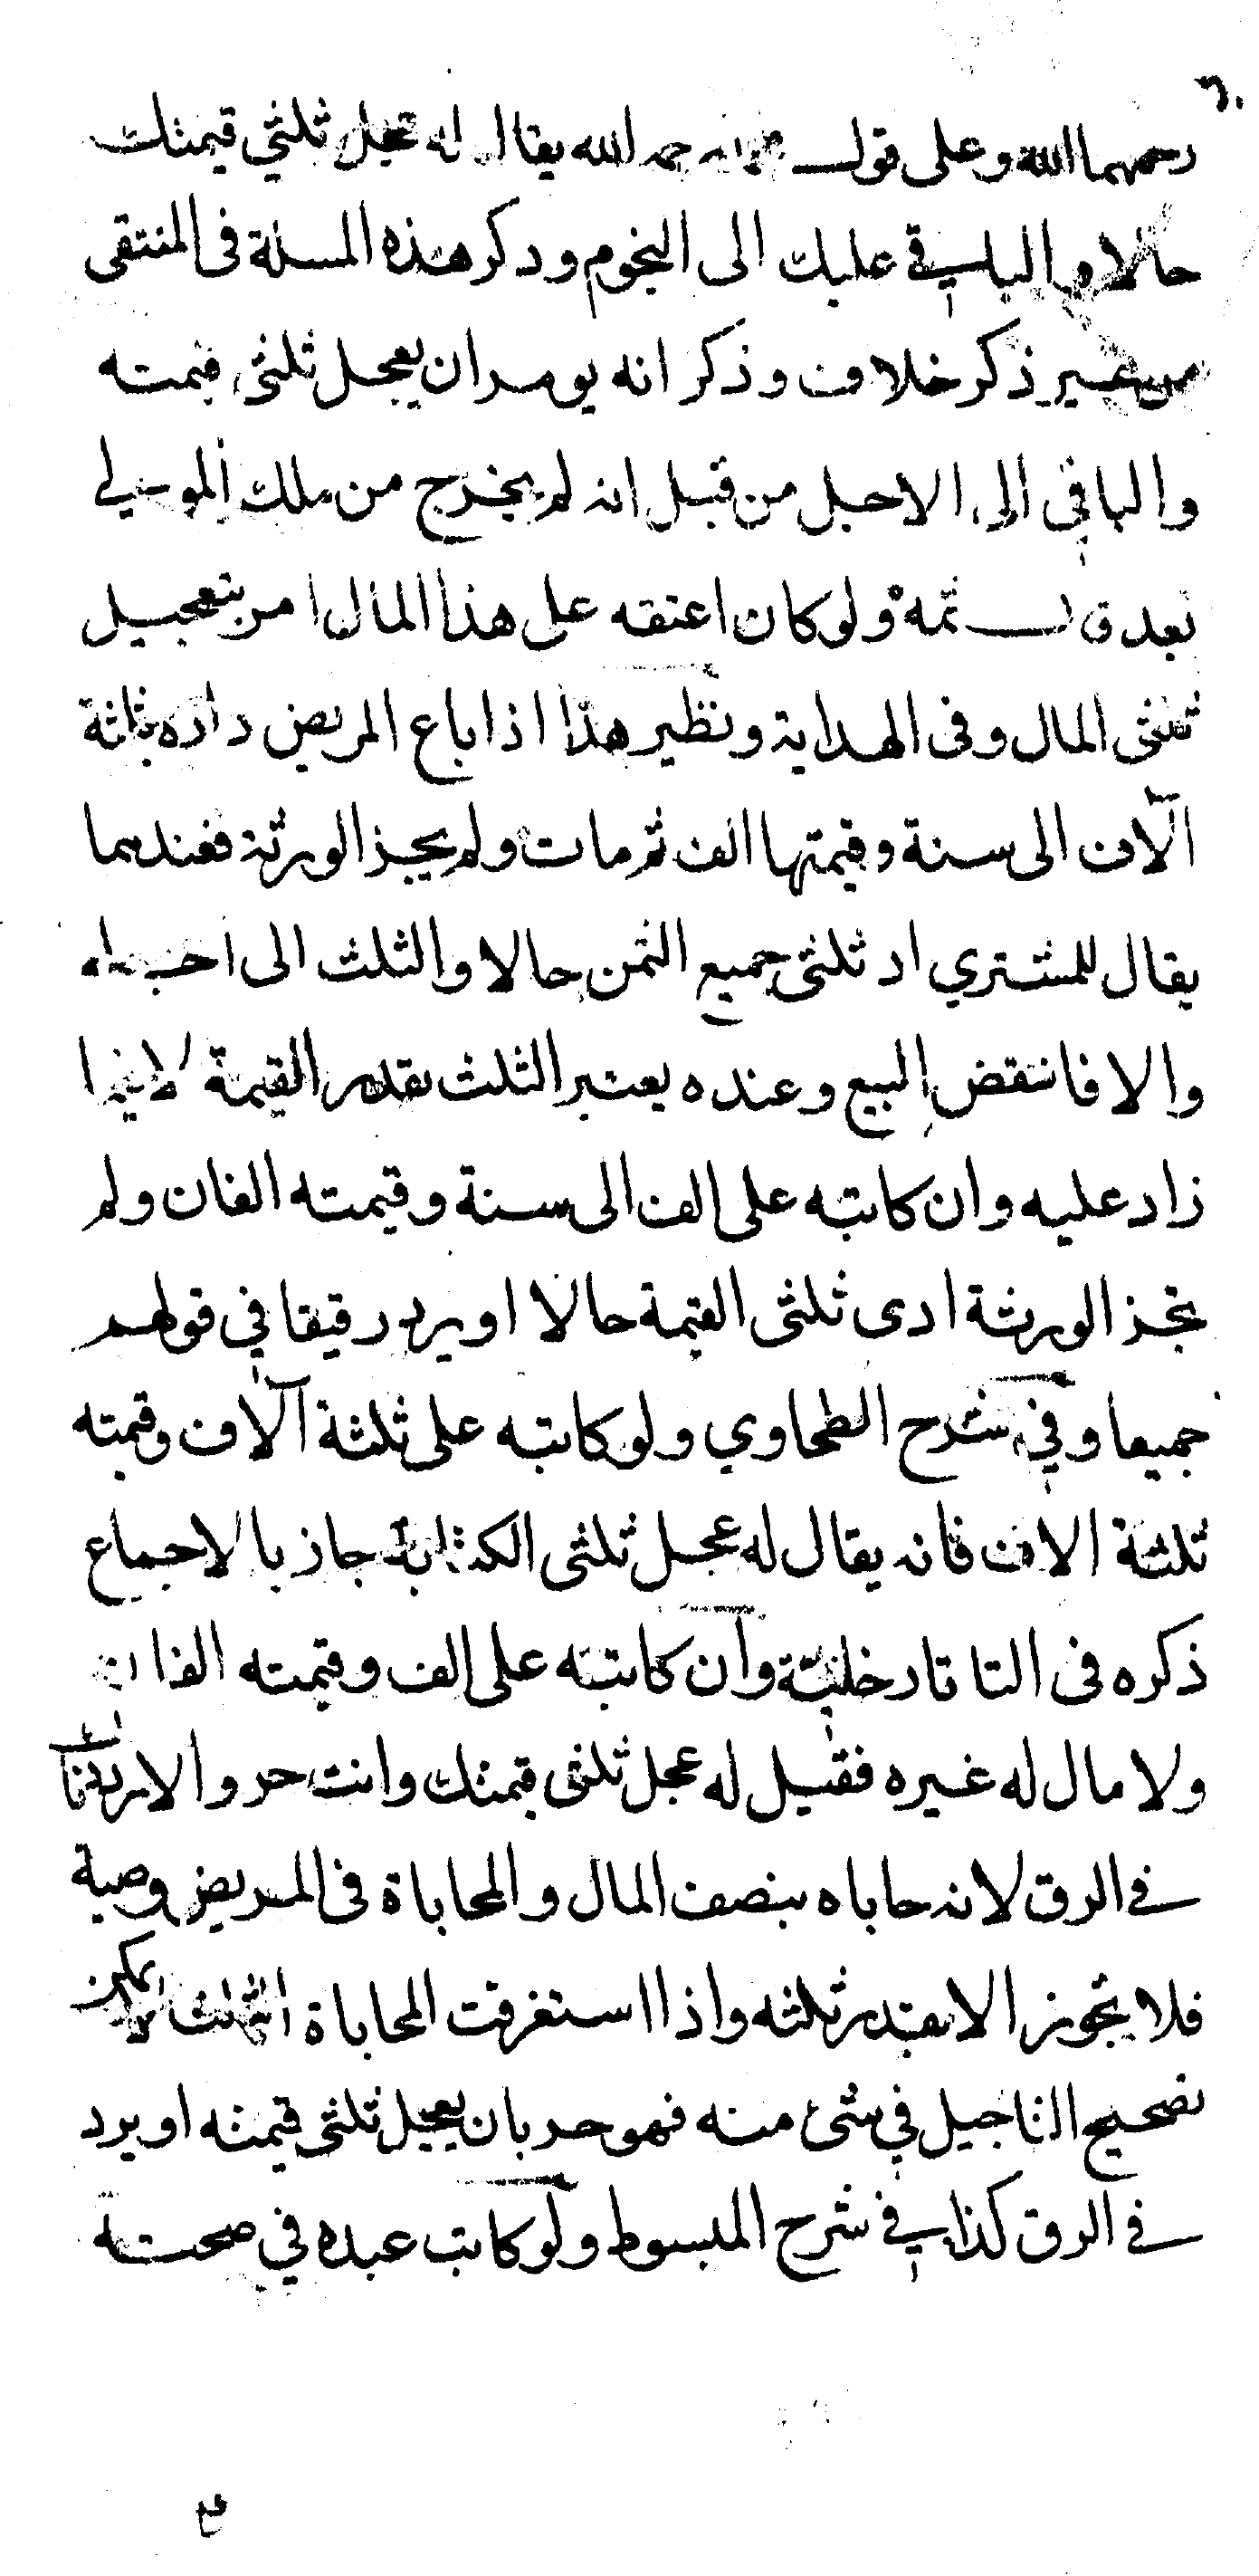 رحمهما الله وعلى قول محمد رحمه الله يقال له تجل ثلثي قيمتك
حالا والباقي عليك الى النجوم وذكر هذه المسلة فى المنتقى
من غير ذكر خلاف وذكر انه يومر ان يعجل ثلثى قيمته
والباقي الى الاجل من قبل انه لم يخرج من ملك المولي
بعد ولو كان اعتقه على هذا المال امر بتعجيل
ثلثى المال وفى الهداية ونظير هذا اذا باع المريض داره بثلثة
آلاف الى سنة وقيمتها الف ثم مات ولم يجز الورثة فعندهما
يقال للمشتري اد ثلثى جميع الثمن حالا والثلث الى اجله
والا فانتقض البيع وعنده يعتبر الثلث بقدر القيمة لا فيما
زاد عليه وان كاتبه على الف الى سنة وقيمته الفان ولم
تجز الورثة ادى ثلثى القيمة حالا او يرد رقيقا في قولهم
جميعا وفي شرح الطحاوي ولو كاتبه على ثلثة آلاف وقيمته
ثلثة الاف فانه يقال له عجل ثلثى الكتابة جاز بالاجماع
ذكره فى التاتارخانية وان كاتبته على الف وقيمته الفان
ولا مال له غيره فقيل له عجل ثلثى قيمتك وانت حر والا رددناك
في الرق لانه حاباه بنصف المال والمحاباة فى المريض وصية
فلا يجوز الا بقدر ثلثه واذا استغرقت المحاباة الثلث لا يمكن
تصحيح التاجيل في شئ منه فهو حر بان يعجل ثلثى قيمته او يرد
في الرق كذا في شرح المبسوط ولو كاتب عبده في صحته